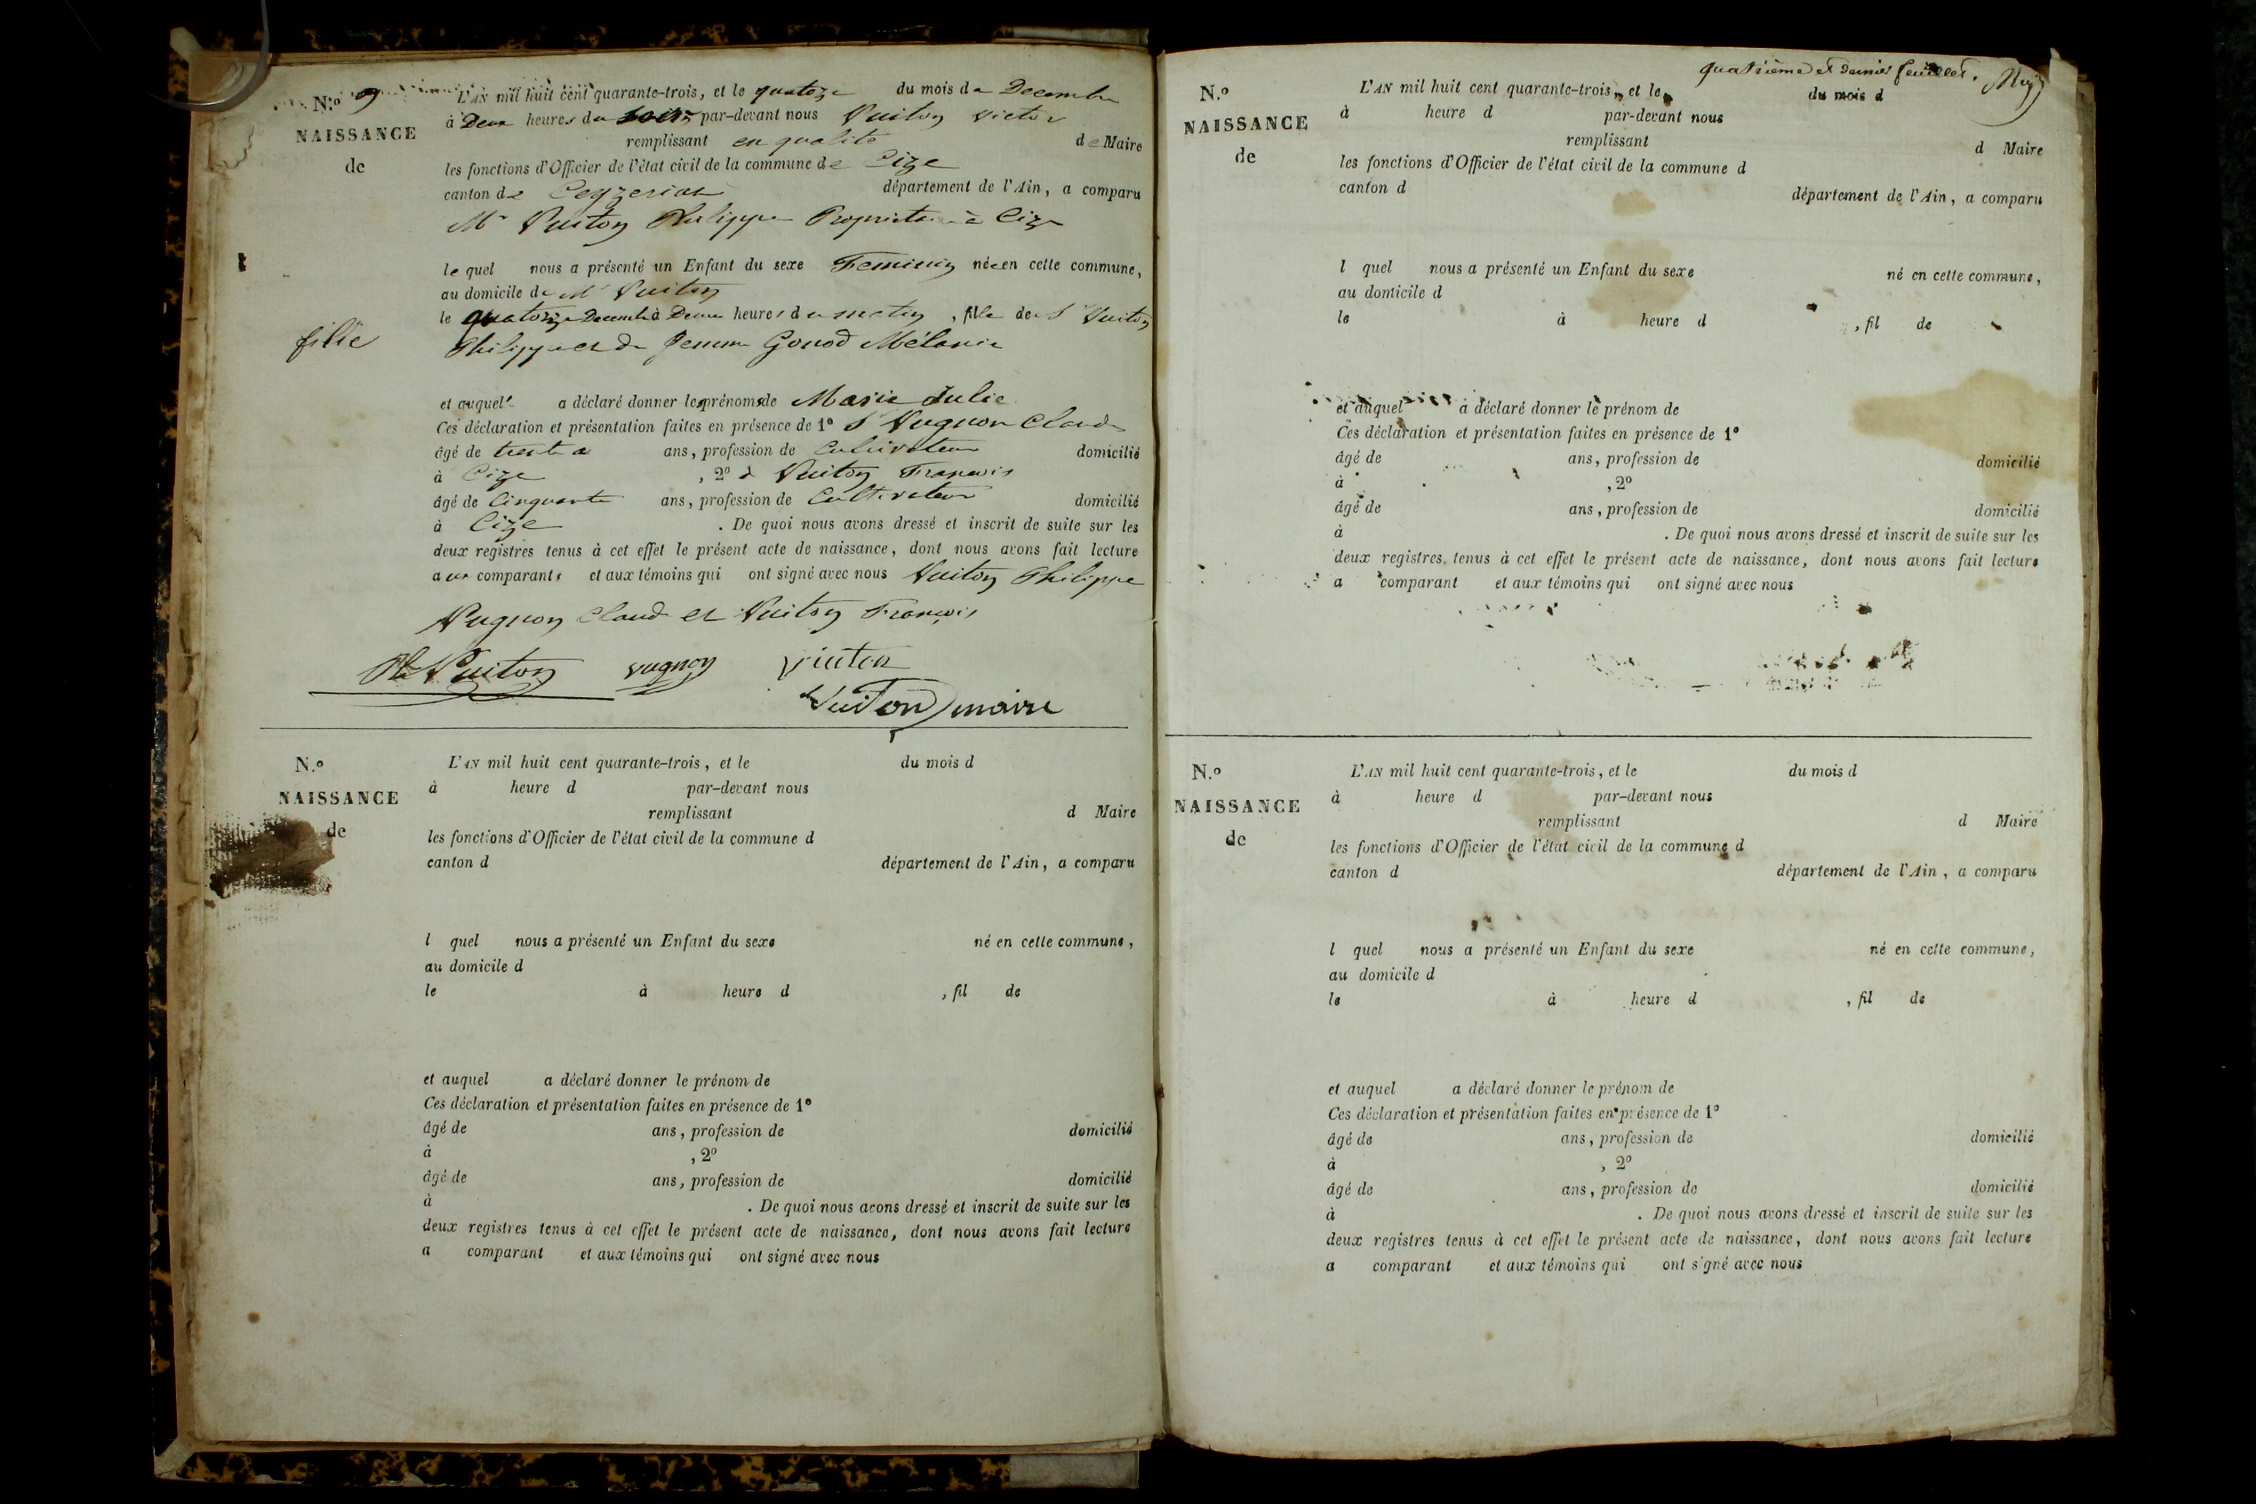 N.º 9
NAISSANCE
de
fille
L'AN mil huit cent quarante-trois, et le quatorze du mois de Decembre
à Deux heures du soir par-devant nous Vuiton Victor
remplissant en qualité de Maire
les fonctions d'Officier de l'état civil de la commune de Cize
canton de Ceyzeriat département de l'Ain, a comparu
Mr Vuiton Philippe Propriétaire à Cize
le quel nous a présenté un Enfant du sexe Feminin née en cette commune,
au domicile de Mr Vuiton
le quatorze Decembre à Deux heures du matin, fille de S Vuiton
Philippe et de femme Gonod Mélanie
et auquel a déclaré donner les prénoms de Marie Julie
Ces déclaration et présentation faites en présence de 1º S Vugnon Claude
âgé de trente ans, profession de Cultivateur domicilié
à Cize, 2º S Vuiton François
âgé de Cinquante ans, profession de Cultivateur domicilié
à Cize. De quoi nous avons dressé et inscrit de suite sur les
deux registres tenus à cet effet le présent acte de naissance, dont nous avons fait lecture
aux comparants et aux témoins qui ont signé avec nous Vuiton Philippe
Vugnon Claude et Vuiton François
Ph Vuiton vugnon vuiton
Vuiton maire
N.º
NAISSANCE
de
L'AN mil huit cent quarante-trois, et le du mois d
à heure d par-devant nous
remplissant d Maire
les fonctions d'Officier de l'état civil de la commune d
canton d département de l'Ain, a comparu
l quel nous a présenté un Enfant du sexe né en cette commune,
au domicile d
le à heure d , fil de
et auquel a déclaré donner le prénom de
Ces déclaration et présentation faites en présence de 1º
âgé de ans, profession de domicilié
à , 2º
âgé de ans, profession de domicilié
à . De quoi nous avons dressé et inscrit de suite sur les
deux registres tenus à cet effet le présent acte de naissance, dont nous avons fait lecture
a comparant et aux témoins qui ont signé avec nous
quatrième et dernier feuillet.
N.º
NAISSANCE
de
L'AN mil huit cent quarante-trois, et le du mois d
à heure d par-devant nous
remplissant d Maire
les fonctions d'Officier de l'état civil de la commune d
canton d département de l'Ain, a comparu
l quel nous a présenté un Enfant du sexe né en cette commune,
au domicile d
le à heure d , fil de
et auquel a déclaré donner le prénom de
Ces déclaration et présentation faites en présence de 1º
âgé de ans, profession de domicilié
à , 2º
âgé de ans, profession de domicilié
à . De quoi nous avons dressé et inscrit de suite sur les
deux registres tenus à cet effet le présent acte de naissance, dont nous avons fait lecture
a comparant et aux témoins qui ont signé avec nous
N.º
NAISSANCE
de
L'AN mil huit cent quarante-trois, et le du mois d
à heure d par-devant nous
remplissant d Maire
les fonctions d'Officier de l'état civil de la commune d
canton d département de l'Ain, a comparu
l quel nous a présenté un Enfant du sexe né en cette commune,
au domicile d
le à heure d , fil de
et auquel a déclaré donner le prénom de
Ces déclaration et présentation faites en présence de 1º
âgé de ans, profession de domicilié
à , 2º
âgé de ans, profession de domicilié
à . De quoi nous avons dressé et inscrit de suite sur les
deux registres tenus à cet effet le présent acte de naissance, dont nous avons fait lecture
a comparant et aux témoins qui ont signé avec nous